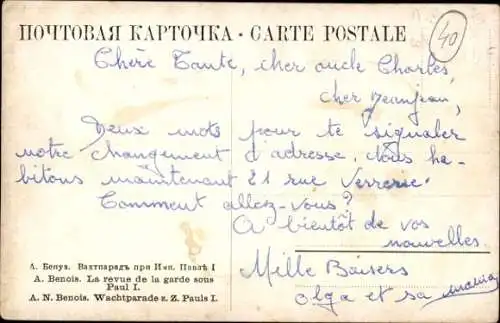 ПОЧТОВАЯ КАРТОЧКА · CARTE POSTALE
40
Chère Tante, cher oncle Charles,
cher Jeanjean,
Deux mots pour te signaler
notre changement d'adresse. Nous ha-
bitons maintenant 21 rue Verrerie.
Comment allez-vous?
A bientôt de vos
nouvelles.
Mille Baisers
Olga et sa maman
А. Бенуа. Вахтпарадъ при Имп. Павлѣ I
A. Benois. La revue de la garde sous
Paul I.
A. N. Benois. Wachtparade z. Z. Pauls I.